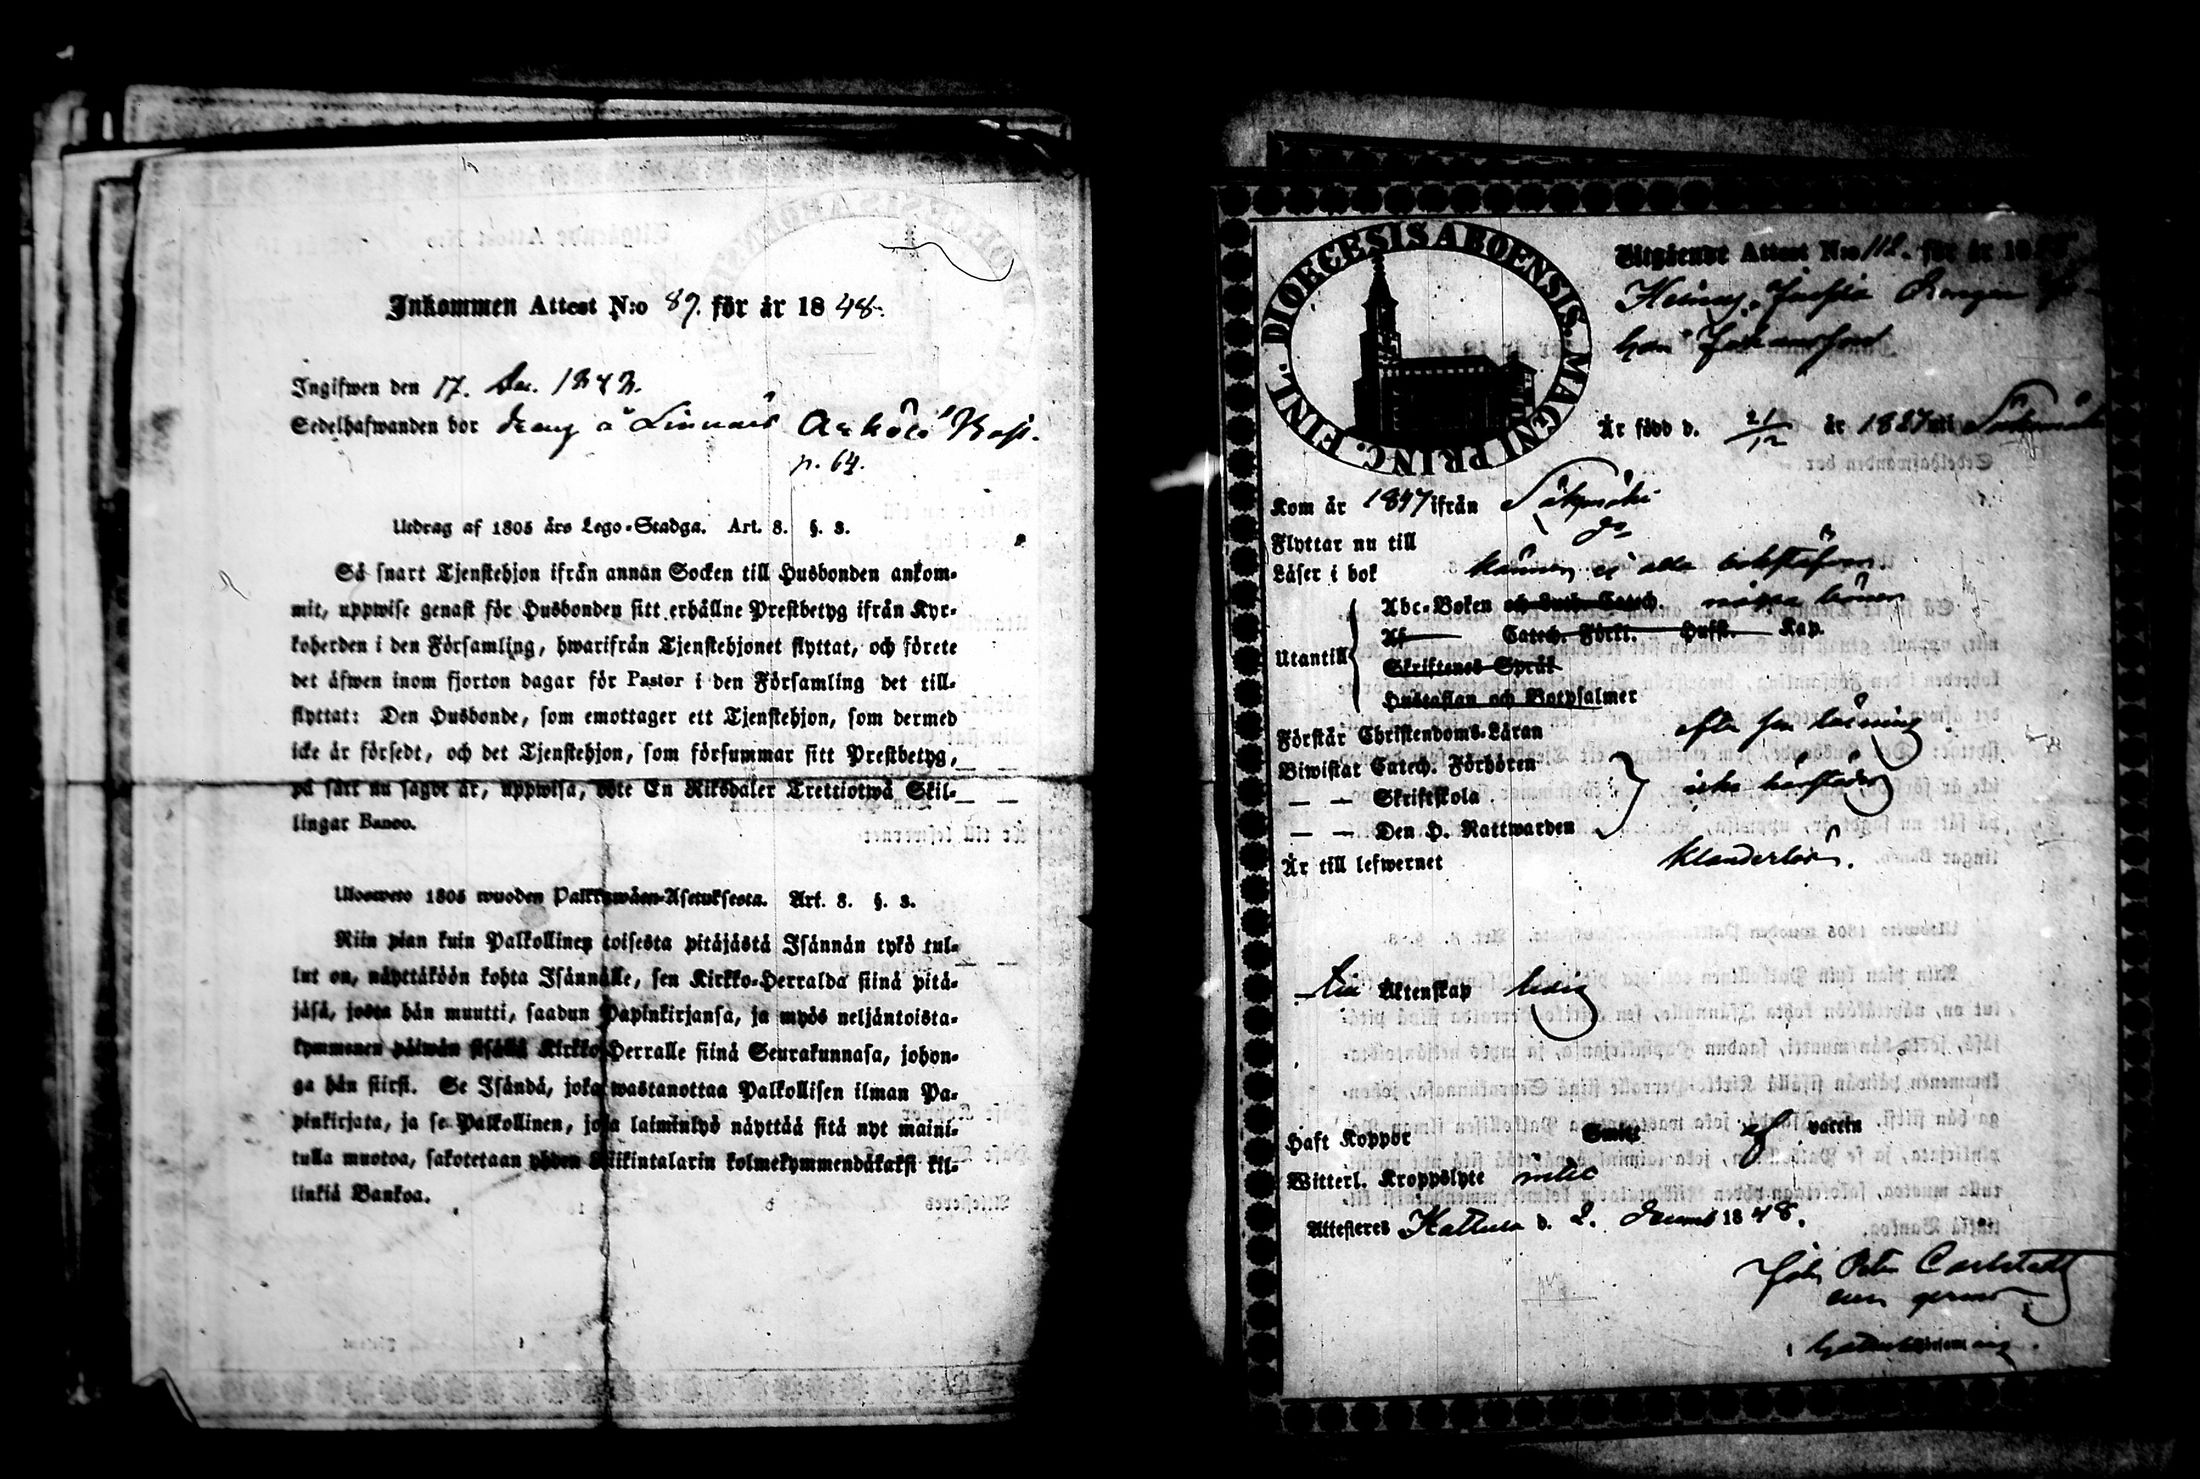 Inkommen Attest N:o 87. för år 1848.
Ingifwen den 17. Dec. 1848.
Sedelhafwanden bor dräng å
p. 64.
Utdrag af 1805 års Lego-Stadga. Art. 8. §. 3.
Så snart Tjenstehjon ifrån annan Socken till Husbonden ankom-
mit, uppwise genast för Husbonden sitt erhållne Prestbetyg ifrån Kyr-
koherden i den Församling, hwarifrån Tjenstehjonet flyttat, och förete
det äfwen inom fjorton dagar för Pastor i den Församling det till-
flyttat: Den Husbonde, som emottager ett Tjenstehjon, som dermed
icke är försedt, och det Tjenstehjon, som försummar sitt Prestbetyg,
på sätt nu sagdt är, uppwisa, böte En Riksdaler Trettiotwå Skil-
lingar Banco.
Ulosweto 1805 wuoden Palkkawäen-Asetuksesta. Art. 8. §. 3.
Niin pian kuin Palkollinen toisesta pitäjästä Isännän tykö tul-
lut on, näyttäköön kohta Isännälle, sen Kirkko-Herralda siinä pitä-
jäsä, josta hän muutti, saadun Papinkirjansa, ja myös neljäntoista-
kymmenen päiwän sisällä Kirkko-Herralle siinä Seurakunnasa, johon-
ga hän siirsi. Se Isändä, joka wastanottaa Palkollisen ilman Pa-
pinkirjata, ja se Palkollinen, joka laiminlyö näyttää sitä nyt maini-
tulla muotoa, sakotetaan yhden Riikintalarin kolmekymmendäkaksi kil-
linkiä Bankoa.
DIOECESIS ABOENSIS. MAGNI PRINC. FINL.
Utgående Attest N:o 112. för år 18
Är född d. 21/12 år 1827 uti
Kom år 1847 ifrån Säkymäki
Flyttar nu till do
Läser i bok känner ej alla bokstäfver
Utantill
Abc-Boken och Luth. Catech. några böner
Af Catech. Förkl. Husst. Kap.
Skriftenes Språk
Hustaflan och Botpsalmer
Förstår Christendoms-Läran efter sin läsning
Biwistat Catech. Förhören
— — Skriftskola icke
— — Den H. Nattwarden
Är till lefwernet klanderlös.
till Äktenskap ledig
Haft Koppor Smitt ef vaccin
Witterl. Kroppslyte intet
Attesteres Kattula d. 2. Decemb 1848.
Joh: Petr Carlstedt